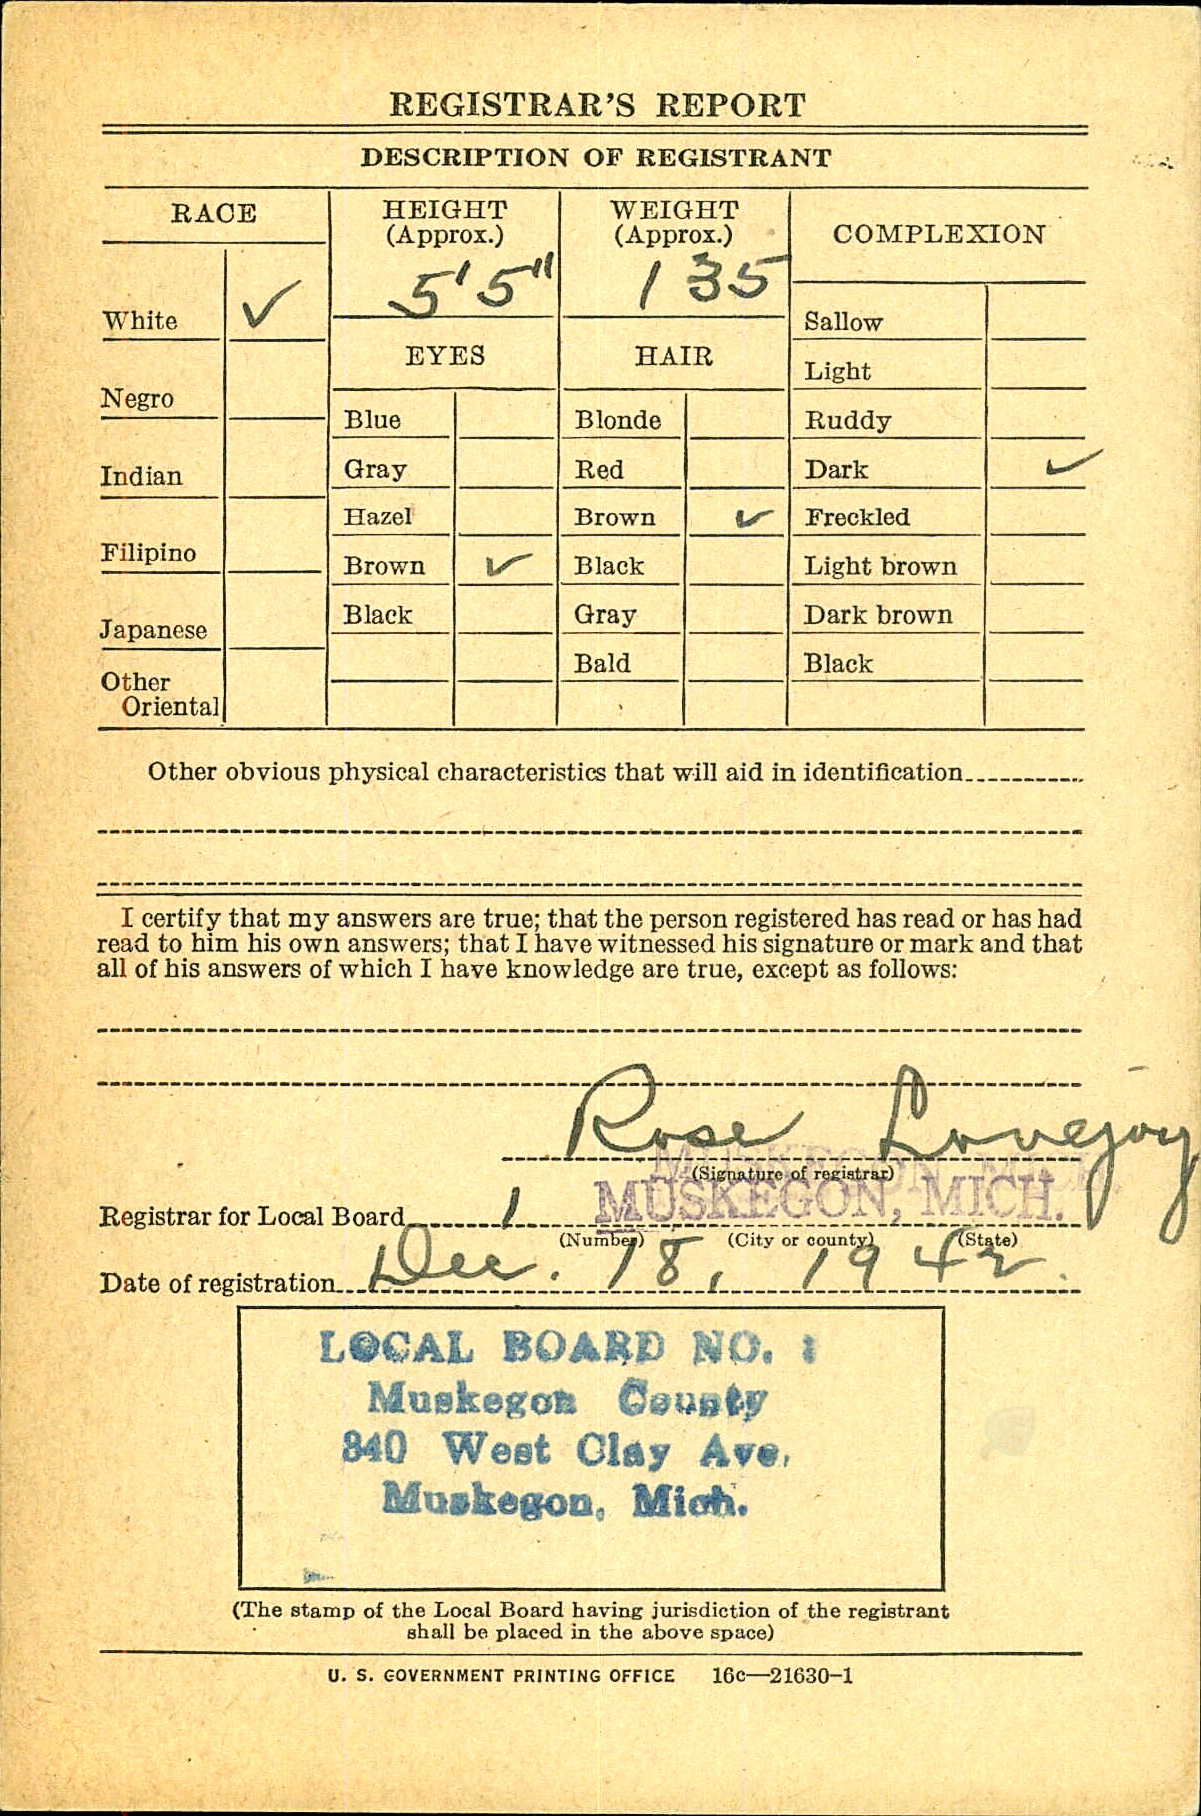 REGISTRAR'S REPORT
DESCRIPTION OF REGISTRANT
RACE
White ✓
Negro
Indian
Filipino
Japanese
Other
Oriental
HEIGHT
(Approx.)
5'5"
EYES
Blue
Gray
Hazel
Brown ✓
Black
WEIGHT
(Approx.)
135
HAIR
Blonde
Red
Brown ✓
Black
Gray
Bald
COMPLEXION
Sallow
Light
Ruddy
Dark ✓
Freckled
Light brown
Dark brown
Black
Other obvious physical characteristics that will aid in identification
I certify that my answers are true; that the person registered has read or has had
read to him his own answers; that I have witnessed his signature or mark and that
all of his answers of which I have knowledge are true, except as follows:
Rose Lovejoy
(Signature of registrar)
Registrar for Local Board 1 MUSKEGON, MICH.
(Number) (City or county) (State)
Date of registration Dec. 18, 1942
LOCAL BOARD NO. 1
Muskegon County
340 West Clay Ave.
Muskegon, Mich.
(The stamp of the Local Board having jurisdiction of the registrant
shall be placed in the above space)
U. S. GOVERNMENT PRINTING OFFICE 16c—21630-1